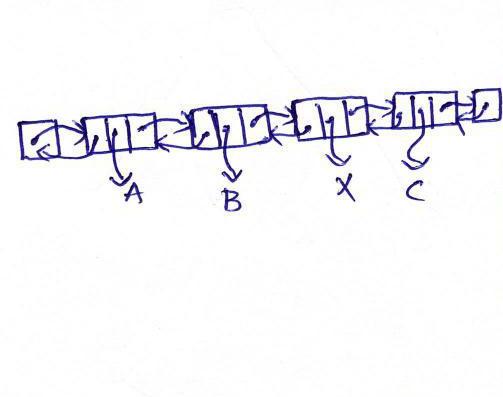 A B X C